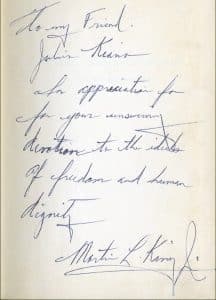 To my Friend.
Julian Keans
In appreciation for
for your unswerving
devotion to the ideals
of freedom and human
dignity
Martin L. King Jr.